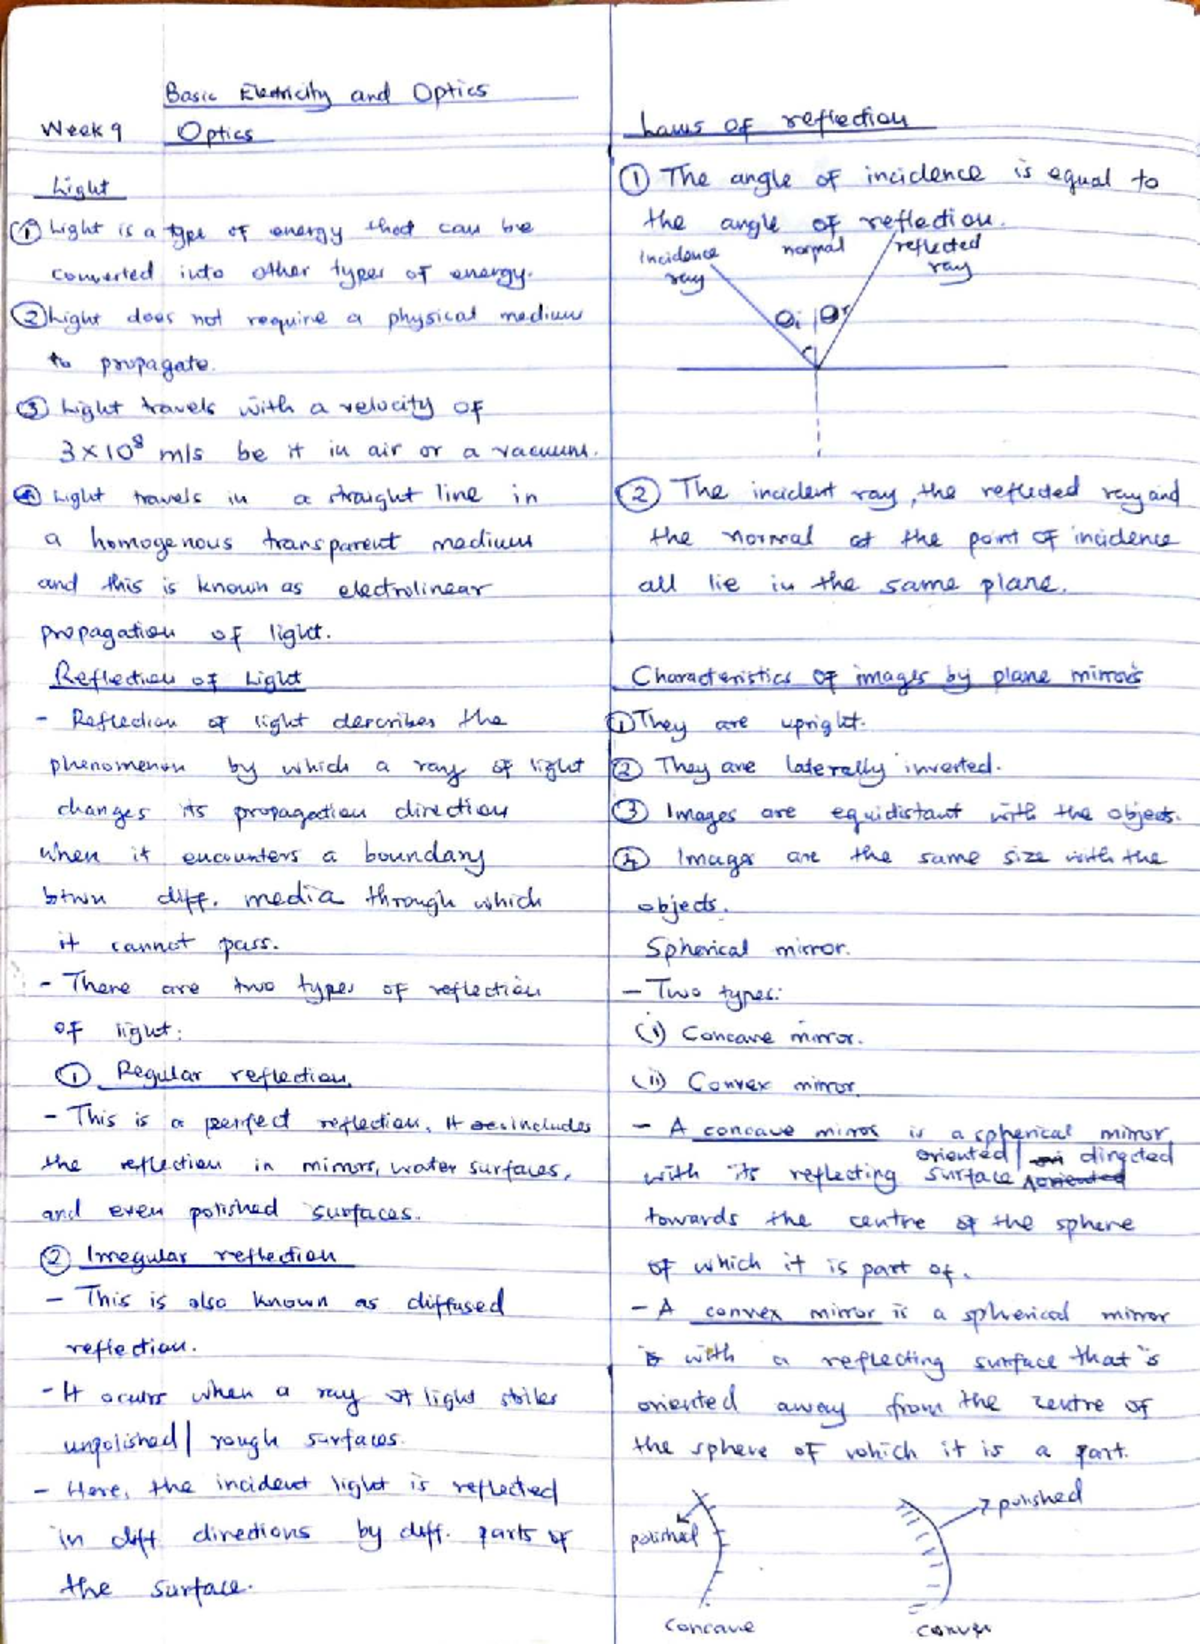 Basic Electricity and Optics
Week 9 Optics
Light
① Light is a type of energy that can be
converted into other types of energy.
② Light does not require a physical medium
to propagate.
③ Light travels with a velocity of
3×10⁸ m/s be it in air or a vacuum.
④ Light travels in a straight line in
a homogenous transparent medium
and this is known as electrolinear
propagation of light.
Reflection of Light
- Reflection of light describes the
phenomenon by which a ray of light
changes its propagation direction
when it encounters a boundary
btwn diff. media through which
it cannot pass.
- There are two types of reflection
of light:
① Regular reflection.
- This is a perfect reflection. It includes
the reflection in mirrors, water surfaces,
and even polished surfaces.
② Irregular reflection
- This is also known as diffused
reflection.
- It occurs when a ray of light strikes
unpolished/ rough surfaces.
- Here, the incident light is reflected
in diff. directions by diff. parts of
the surface.
Laws of reflection
① The angle of incidence is equal to
the angle of reflection.
Incidence ray
normal
reflected ray
θi θr
② The incident ray, the reflected ray and
the normal at the point of incidence
all lie in the same plane.
Characteristics of images by plane mirrors
① They are upright.
② They are laterally inverted.
③ Images are equidistant with the objects.
④ Images are the same size with the
objects.
Spherical mirror.
- Two types:
(i) Concave mirror.
(ii) Convex mirror.
- A concave mirror is a spherical mirror
with its reflecting surface oriented/ directed
towards the centre of the sphere
of which it is part of.
- A convex mirror is a spherical mirror
with a reflecting surface that is
oriented away from the centre of
the sphere of which it is a part.
polished
polished
Concave
Convex